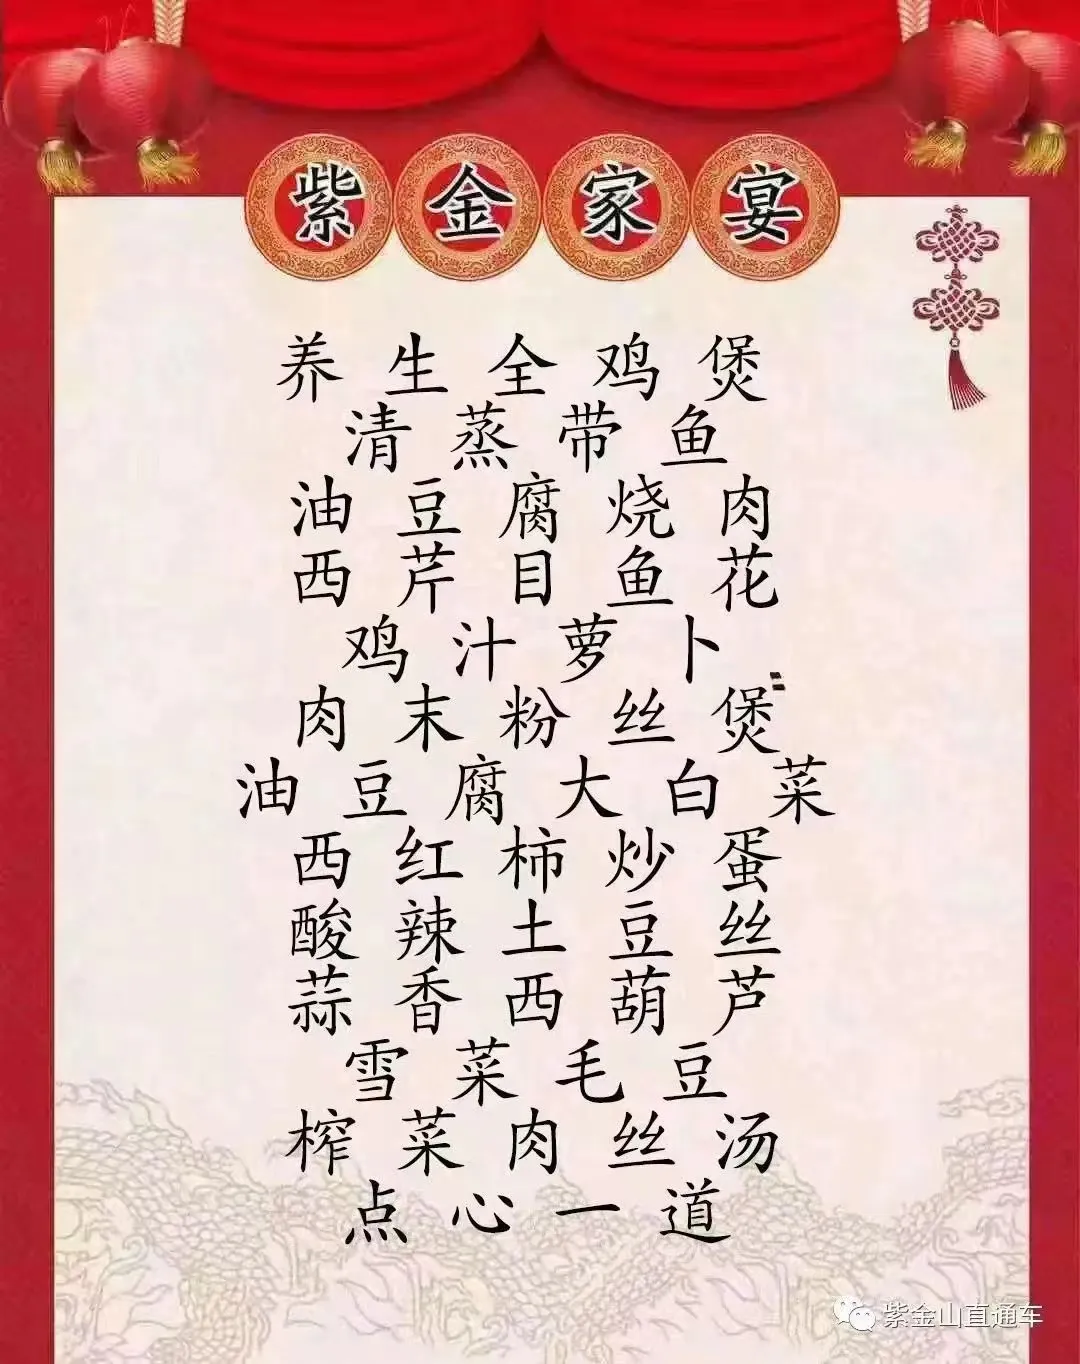 紫金家宴
养生全鸡煲
清蒸带鱼
油豆腐烧肉
西芹目鱼花
鸡汁萝卜
肉末粉丝煲
油豆腐大白菜
西红柿炒蛋
酸辣土豆丝
蒜香西葫芦
雪菜毛豆
榨菜肉丝汤
点心一道
紫金山直通车